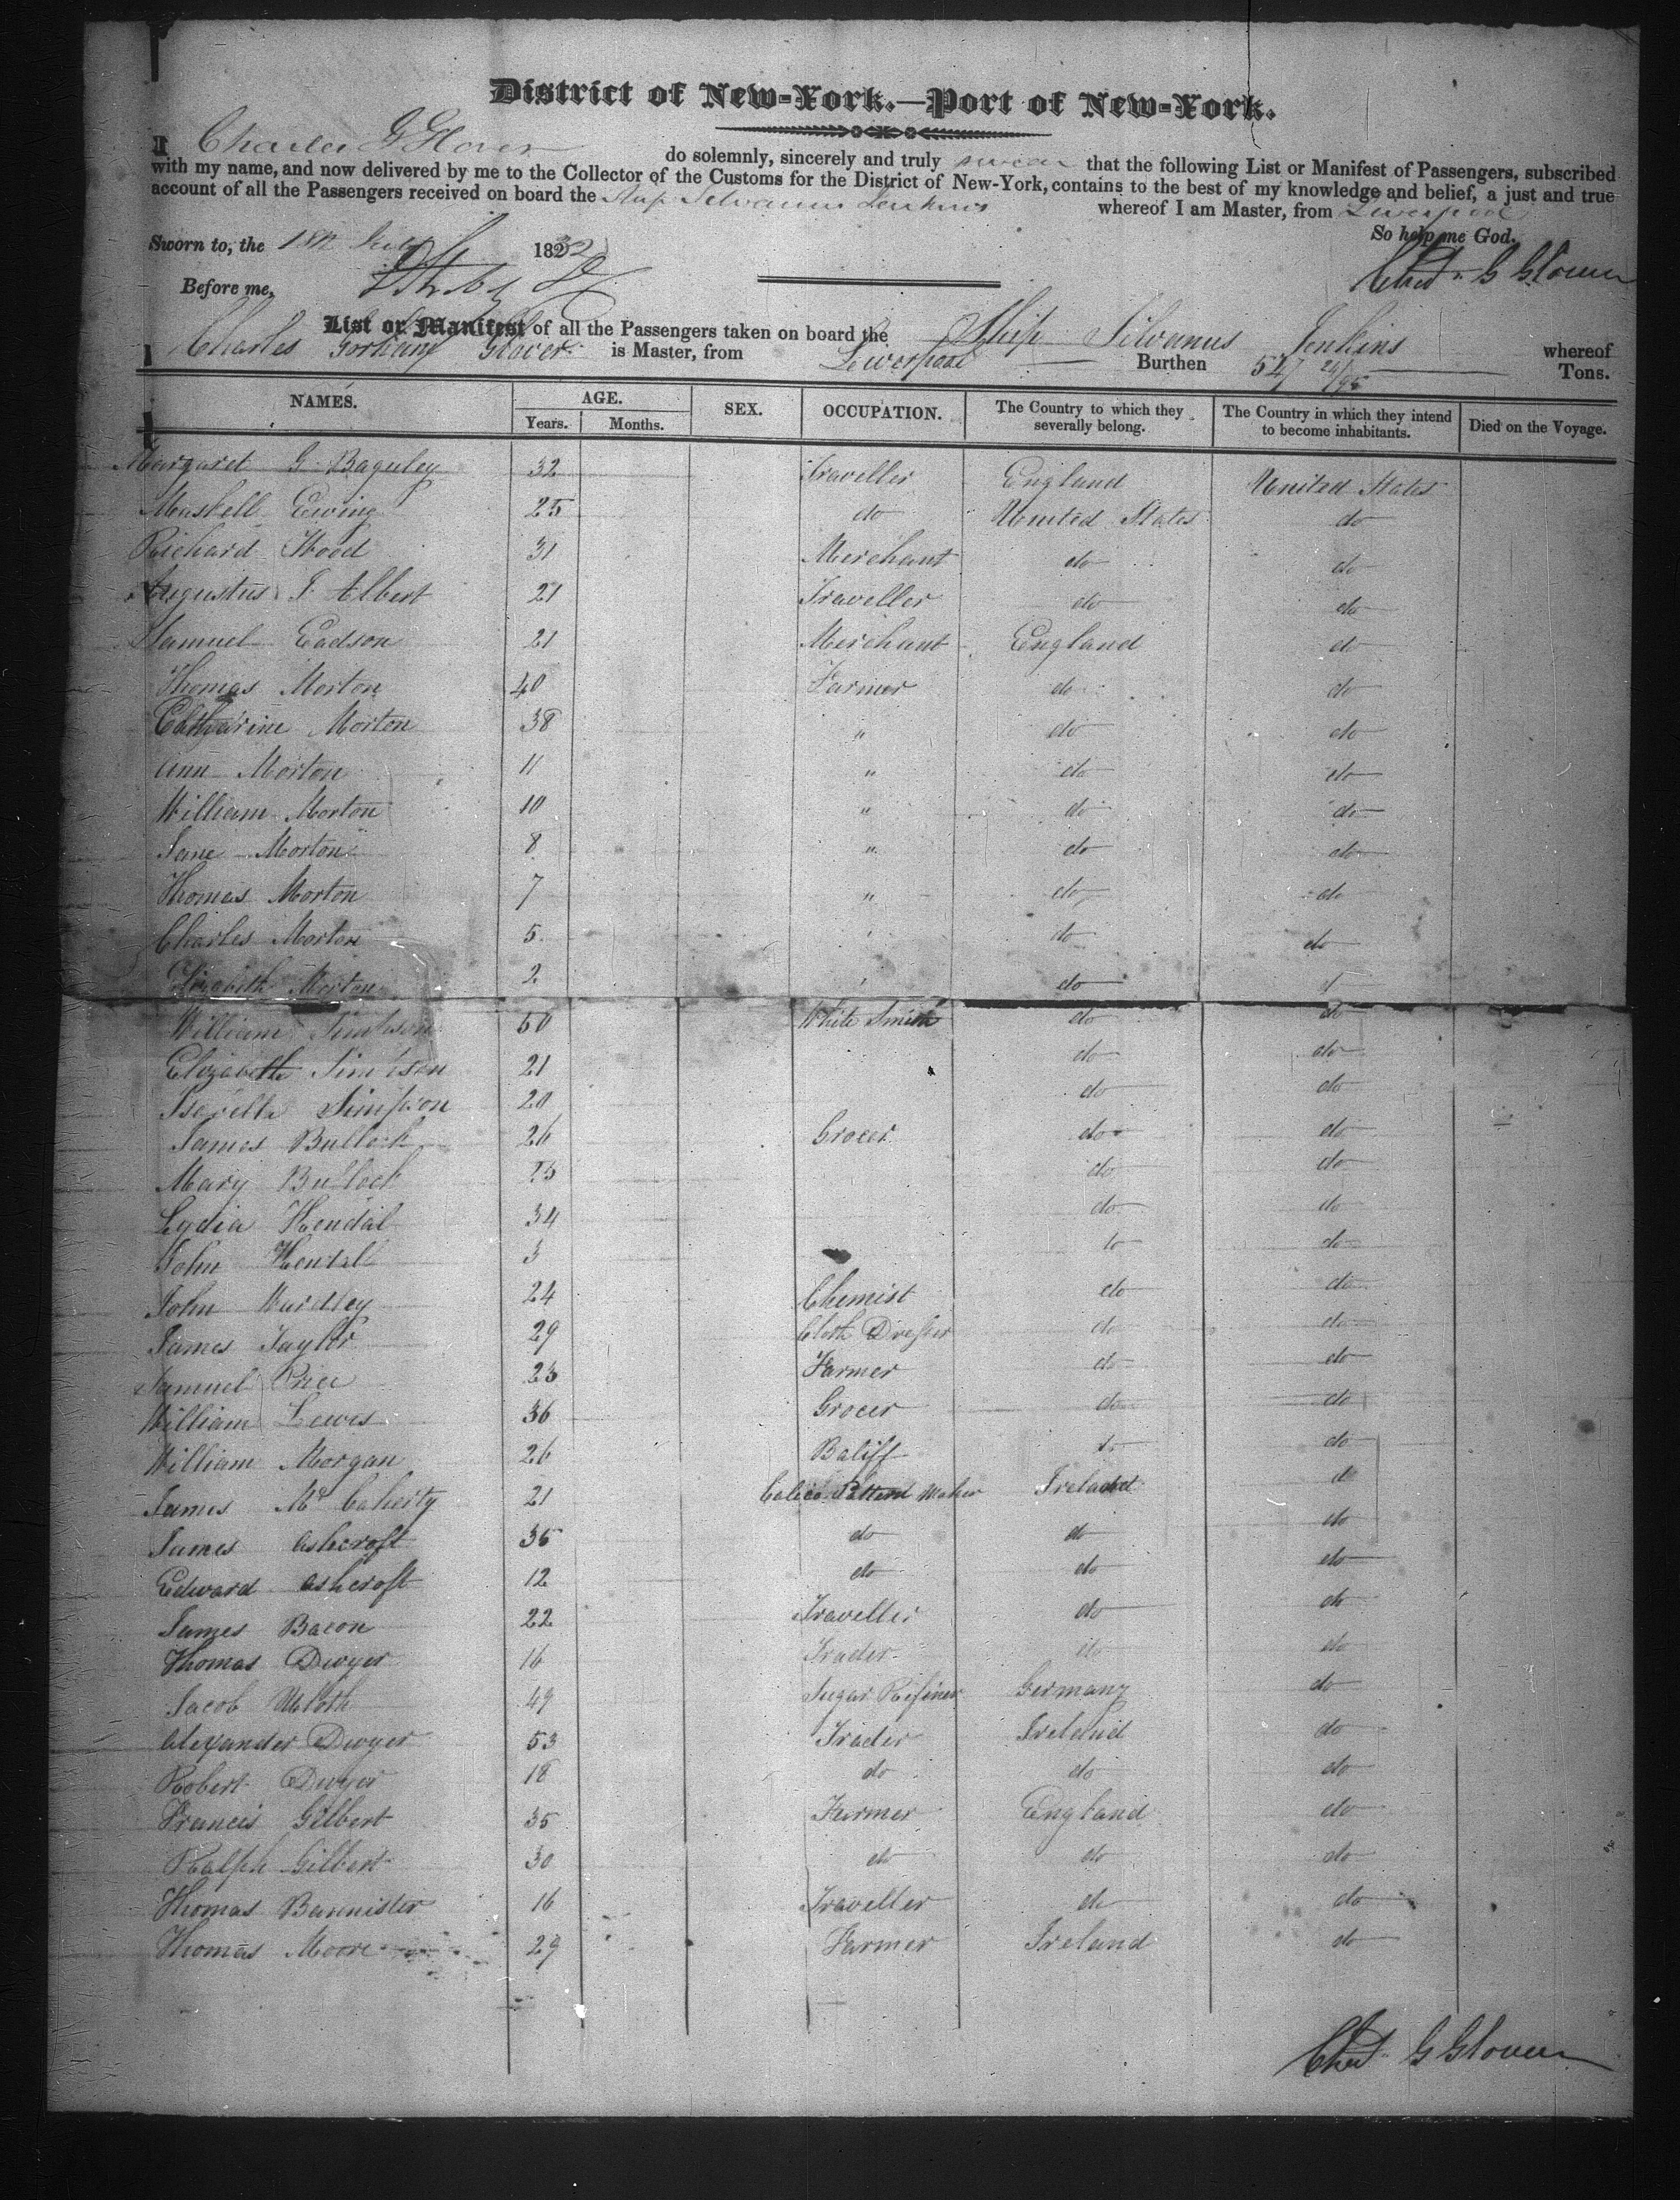 District of New-York.—Port of New-York.
I Charles G Glover do solemnly, sincerely and truly swear that the following List or Manifest of Passengers, subscribed
with my name, and now delivered by me to the Collector of the Customs for the District of New-York, contains to the best of my knowledge and belief, a just and true
account of all the Passengers received on board the Ship Silvanus Jenkins whereof I am Master, from Liverpool
So help me God.
Sworn to, the 18th July 1832
Chas G Glover
Before me,
List or Manifest of all the Passengers taken on board the Ship Silvanus Jenkins whereof
Charles Gorham Glover is Master, from Liverpool Burthen 547 24/95 Tons.
NAMES. AGE. Years. Months. SEX. OCCUPATION. The Country to which they severally belong. The Country in which they intend to become inhabitants. Died on the Voyage.
Margaret G Baguley 32 Traveller England United States
Maskell Ewing 25 do United States do
Richard Wood 31 Merchant do do
Augustus F Albert 21 Traveller do do
Samuel Eadson 21 Merchant England do
Thomas Morton 40 Farmer do do
Catharine Morton 38 " do do
Ann Morton 11 " do do
William Morton 10 " do do
Jane Morton 8 " do do
Thomas Morton 7 " do do
Charles Morton 5 " do do
Elizabeth Morton 2 " do do
William Simpson 50 White Smith do do
Elizabeth Simpson 21 do do
Isabella Simpson 20 do do
James Bullock 26 Grocer do do
Mary Bullock 25 do do
Lydia Kendal 34 do do
John Kendall 3 do do
John Wardley 24 Chemist do do
James Taylor 29 Cloth Dresser do do
Samuel Price 23 Farmer do do
William Lewis 36 Grocer do do
William Morgan 26 Baliff do do
James McCaherty 21 Calico Pattern Maker Ireland do
James Ashcroft 35 do do do
Edward Ashcroft 12 do do do
James Bacon 22 Traveller do do
Thomas Dwyer 16 Trader do do
Jacob 49 Sugar Refiner Germany do
Alexander Dwyer 53 Trader Ireland do
Robert Dwyer 18 do do do
Francis Gilbert 35 Farmer England do
Ralph Gilbert 30 do do do
Thomas Bannister 16 Traveller do do
Thomas Moore 29 Farmer Ireland do
Chas G Glover